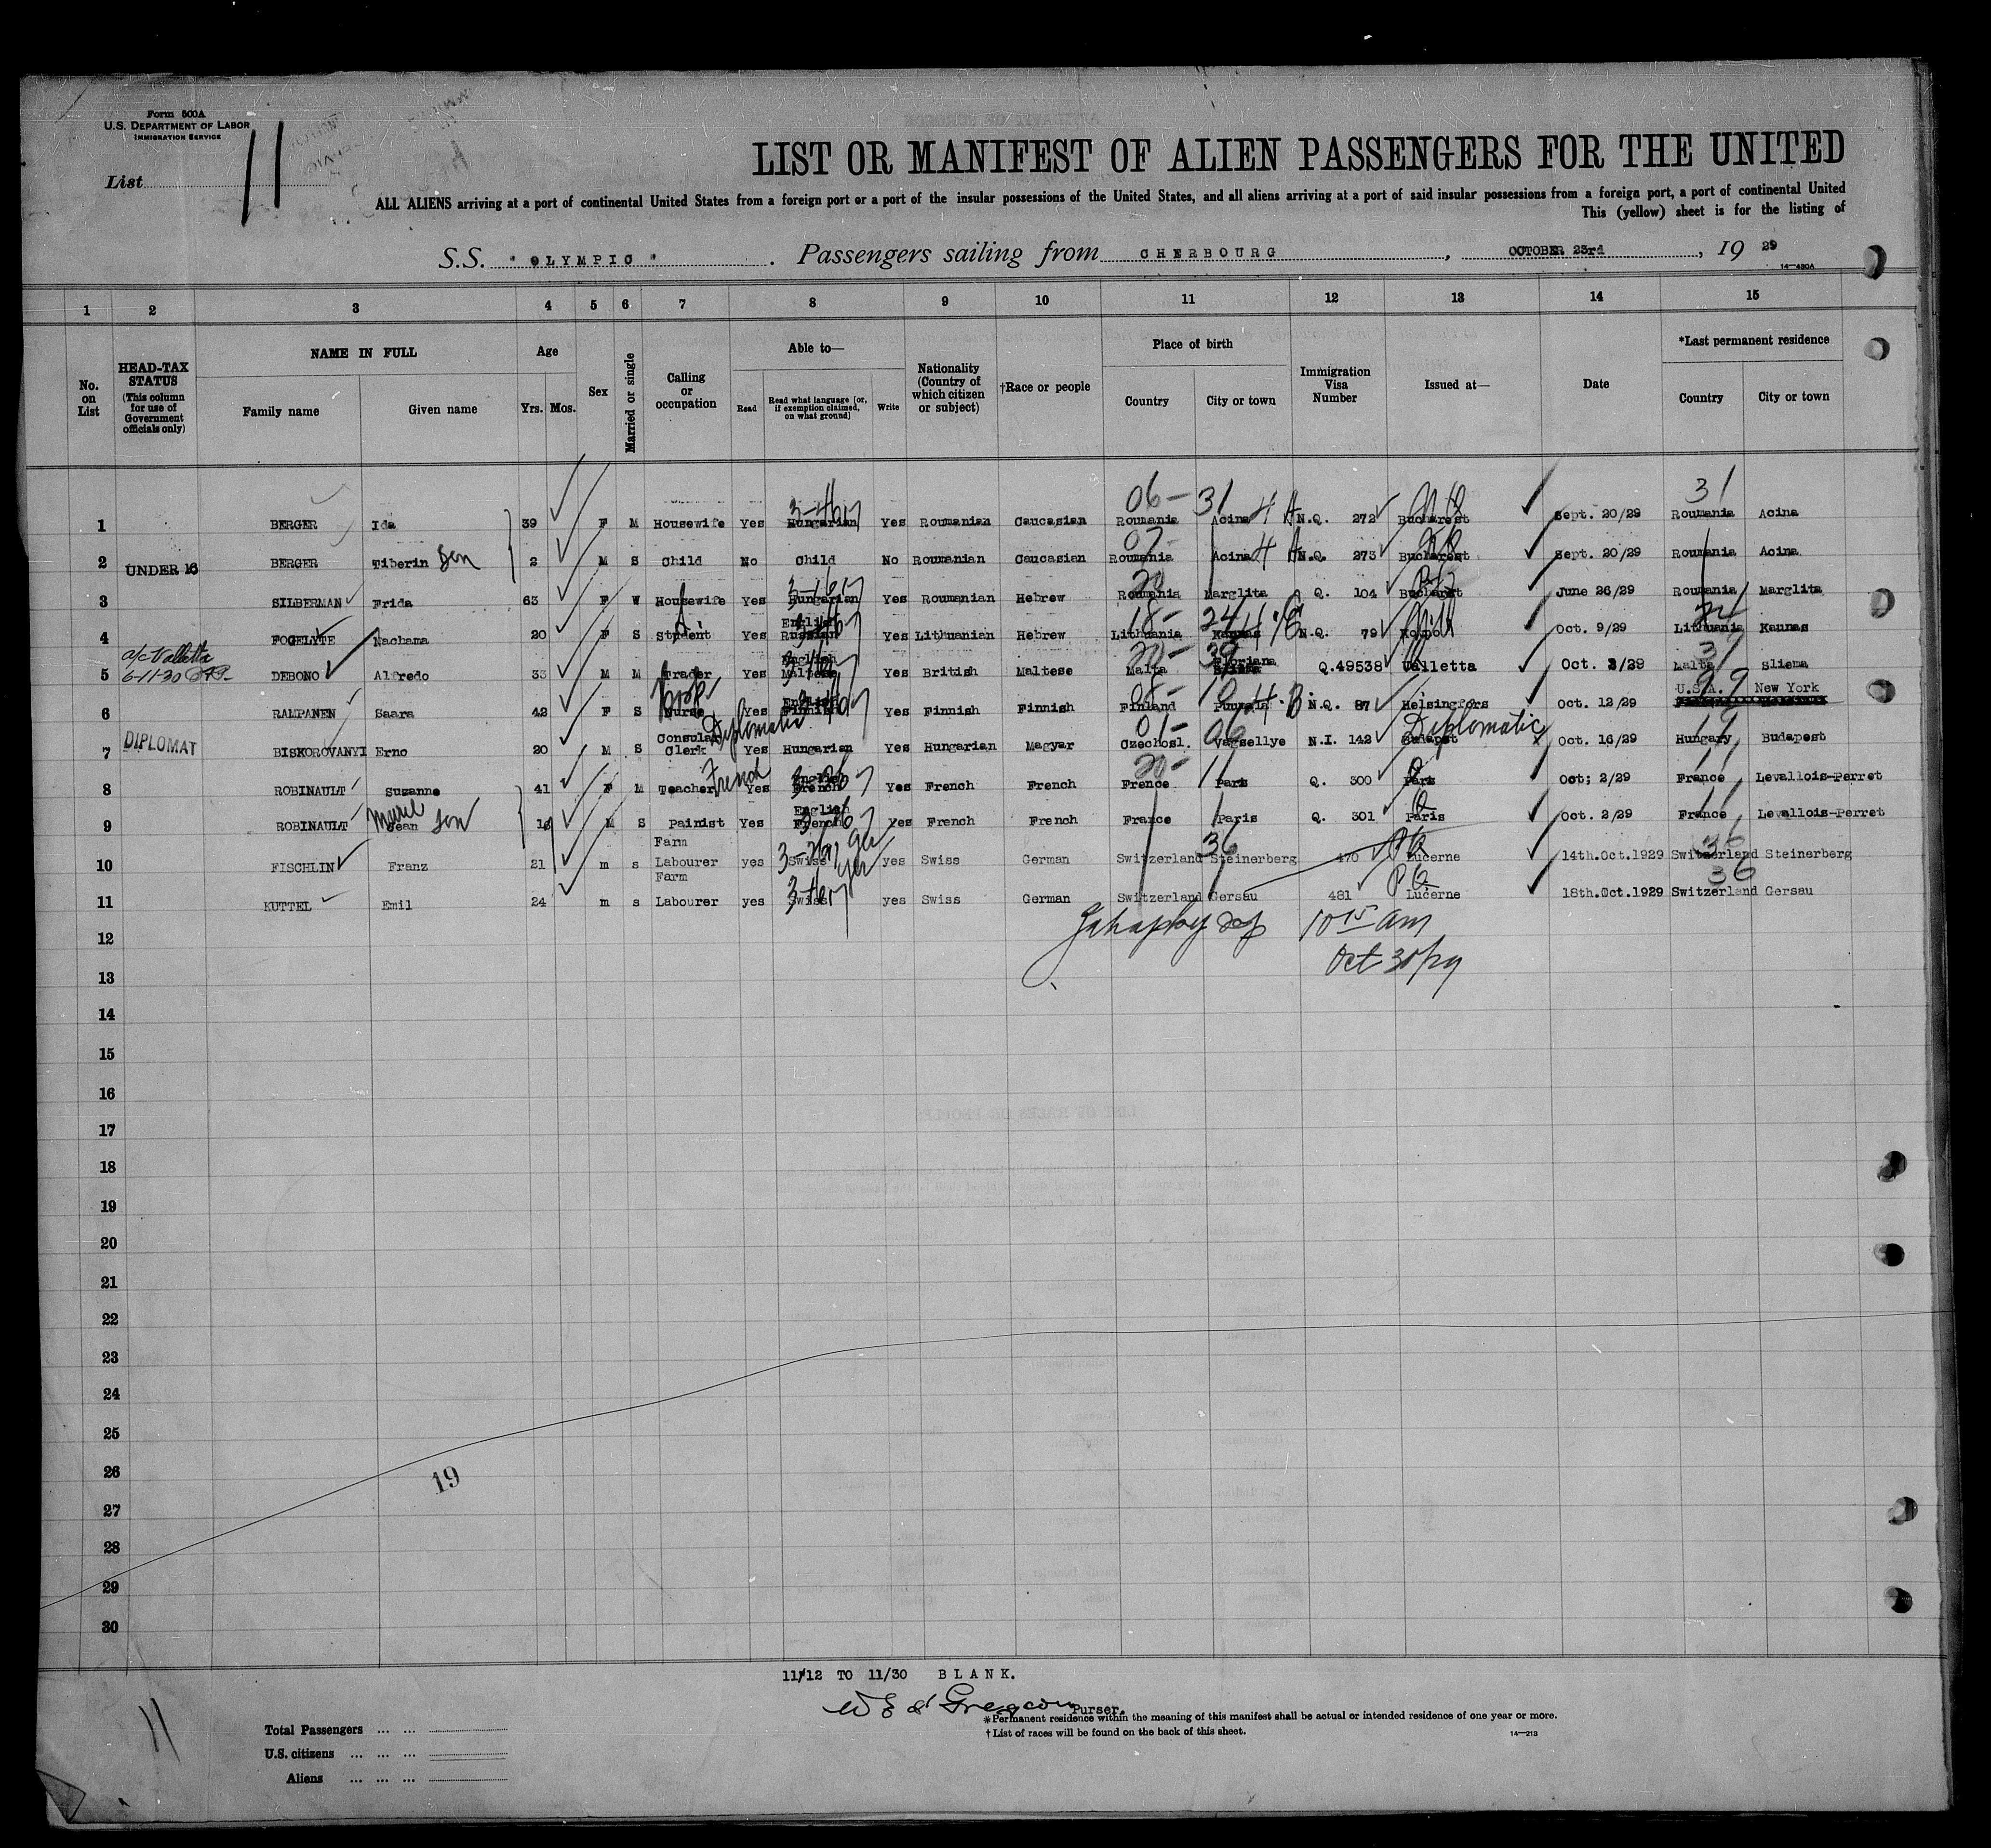 Form 500A
U.S. DEPARTMENT OF LABOR
IMMIGRATION SERVICE
List 11
LIST OR MANIFEST OF ALIEN PASSENGERS FOR THE UNITED
ALL ALIENS arriving at a port of continental United States from a foreign port or a port of the insular possessions of the United States, and all aliens arriving at a port of said insular possessions from a foreign port, a port of continental United
This (yellow) sheet is for the listing of
S.S. "OLYMPIC". Passengers sailing from CHERBOURG, OCTOBER 23rd, 19 29
14—430A
1 2 3 4 5 6 7 8 9 10 11 12 13 14 15
No. on List
HEAD-TAX STATUS (This column for use of Government officials only)
NAME IN FULL
Family name Given name
Age
Yrs. Mos.
Sex
Married or single
Calling or occupation
Able to—
Read
Read what language [or, if exemption claimed, on what ground]
Write
Nationality (Country of which citizen or subject)
†Race or people
Place of birth
Country City or town
Immigration Visa Number
Issued at—
Date
*Last permanent residence
Country City or town
06- 31 31
1 BERGER Ida 39 F M Housewife Yes Hungarian Yes Roumanian Caucasian Roumania Acina N.Q. 272 Bucharest Sept. 20/29 Roumania Acina
2 UNDER 16 BERGER Tiberin Son 2 M S Child No Child No Roumanian Caucasian Roumania Acina N.Q. 273 Bucharest Sept. 20/29 Roumania Acina
3 SILBERMAN Frida 63 F W Housewife Yes Hungarian Yes Roumanian Hebrew Roumania Marglita Q. 104 Bucharest June 26/29 Roumania Marglita
4 FOGELYTE Nachama 20 F S Student Yes English Russian Yes Lithuanian Hebrew Lithuania Kaunas N.Q. 79 Oct. 9/29 Lithuania Kaunas
a/c Valletta
6-11-30
5 DEBONO Alfredo 33 M M Trader Yes English Maltese Yes British Maltese Malta Floriana Q.49538 Valletta Oct. 3/29 Malta Sliema
6 RAMPANEN Saara 42 F S Nurse Yes English Finnish Yes Finnish Finnish Finland N.Q. 87 Helsingfors Oct. 12/29 U.S.A. New York
7 DIPLOMAT BISKOROVANYI Erno 20 M S Consular Clerk Diplomatic Yes Hungarian Yes Hungarian Magyar Czechosl. Vagsellye N.I. 142 Budapest Diplomatic Oct. 16/29 Hungary Budapest
8 ROBINAULT Suzanne 41 F M Teacher French Yes English French Yes French French France Paris Q. 300 Paris Oct; 2/29 France Levallois-Perret
9 ROBINAULT Jean Son M S Painist Yes English French Yes French French France Paris Q. 301 Paris Oct. 2/29 France Levallois-Perret
10 FISCHLIN Franz 21 m s Farm Labourer yes Swiss yes Swiss German Switzerland Steinerberg 470 Lucerne 14th.Oct.1929 Switzerland Steinerberg
11 KUTTEL Emil 24 m s Farm Labourer yes Swiss yes Swiss German Switzerland Gersau 481 Lucerne 18th.Oct.1929 Switzerland Gersau
12 10 15 am
Oct 30/29
13
14
15
16
17
18
19
20
21
22
23
24
25
26
19
27
28
29
30
11/12 TO 11/30 BLANK.
Purser.
*Permanent residence within the meaning of this manifest shall be actual or intended residence of one year or more.
†List of races will be found on the back of this sheet.
14—213
11
Total Passengers ... ...
U.S. citizens ... ... ...
Aliens ... ... ...